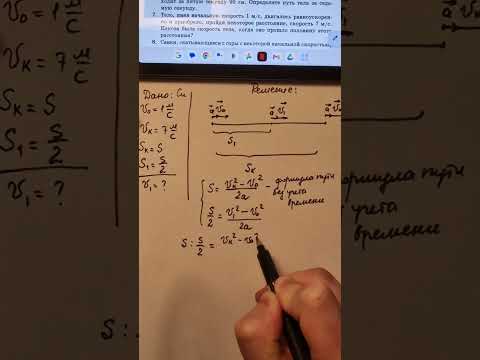 ходит за пятую секунду 90 см. Определите путь тела за седьмую секунду.
7. Тело, имея начальную скорость 1 м/с, двигалось равноускоренно и приобрело, пройдя некоторое расстояние, скорость 7 м/с. Какова была скорость тела, когда оно прошло половину этого расстояния?
8. Санки, скатывающиеся с горы с некоторой начальной скоростью,
Дано: Си
v₀ = 1 м/с
vₖ = 7 м/с
Sₖ = S
S₁ = S/2
v₁ = ?
v₀ = 1 м/с
vₖ = 7 м/с
Sₖ = S
S₁ = S/2
v₁ = ?
Решение:
a v₀
a v₁
a v
S₁
Sₖ
S = (vₖ² − v₀²)/2a – формула пути без учета времени
S/2 = (v₁² − v₀²)/2a
S : S/2 = vₖ² − v₀²
S :